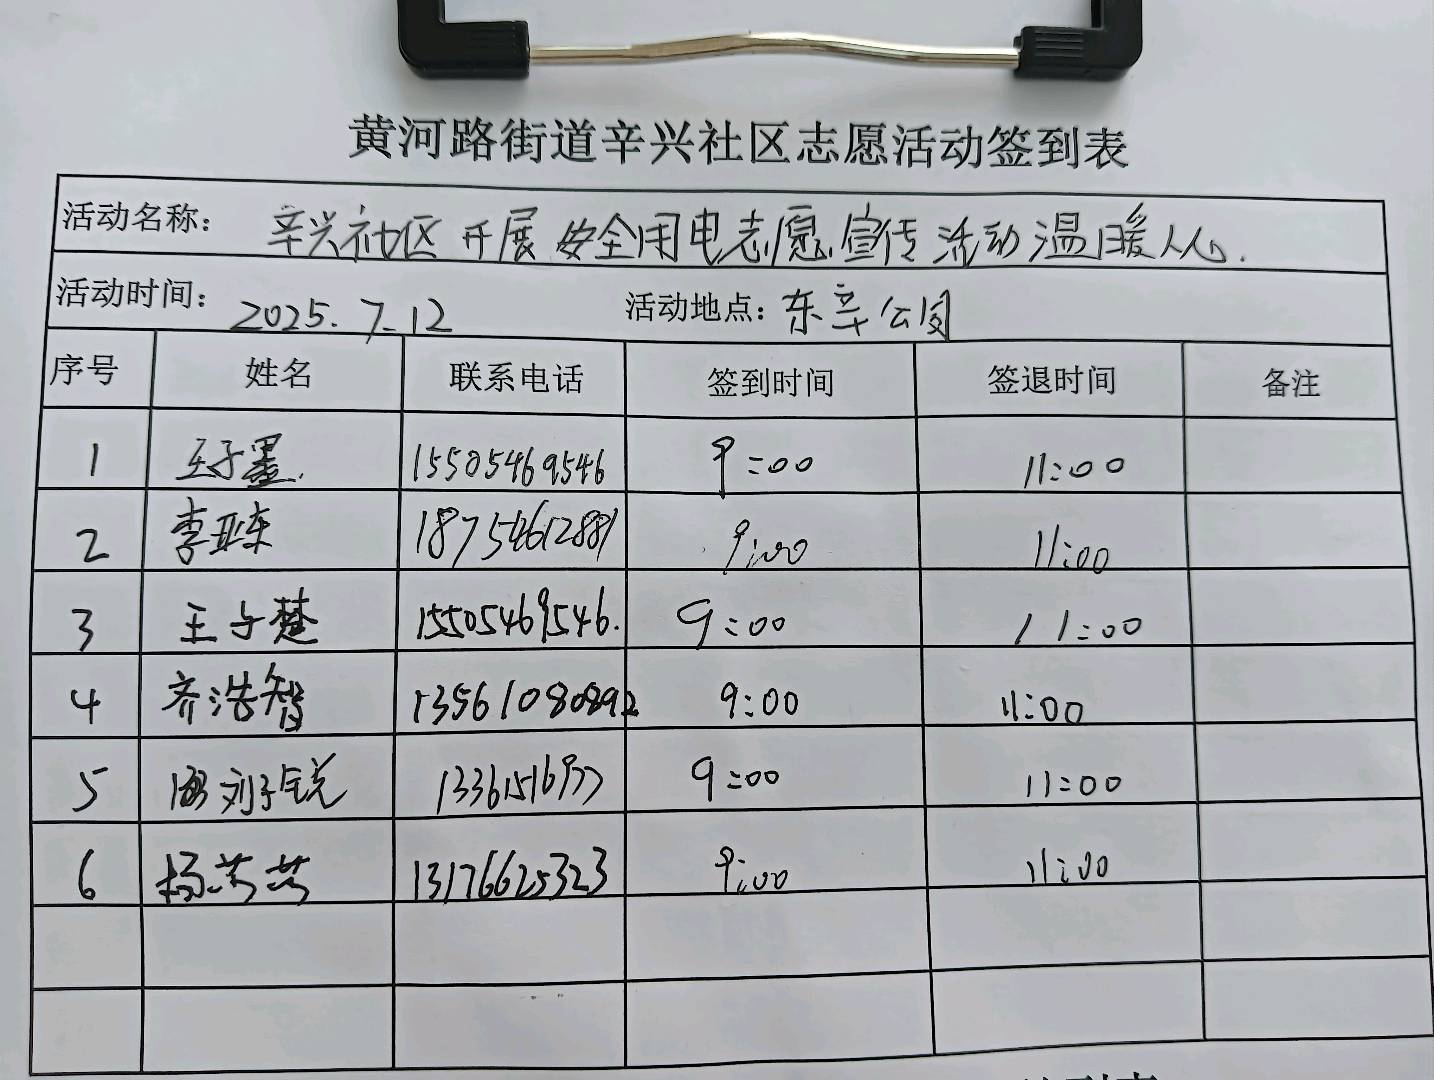 黄河路街道辛兴社区志愿活动签到表
活动名称： 辛兴社区开展安全用电志愿宣传活动温暖人心.
活动时间： 2025.7.12 活动地点：东辛公园
序号 姓名 联系电话 签到时间 签退时间 备注
1 王子墨. 15505469546 9:00 11:00
2 李亚东 18754612881 9:00 11:00
3 王子楚 15505469546. 9:00 11:00
4 齐浩智 13561080892 9:00 11:00
5 刘子锐 9:00 11:00
6 杨芳芳 13176625323 9:00 11:00